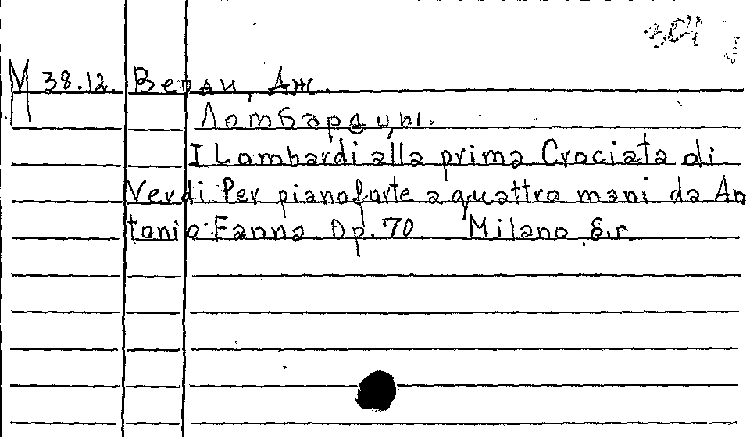 304
М 38.12. Верди, Дж.
Ломбардцы.
I Lombardi alla prima Crociata di
Verdi Per pianoforte a quattro mani da An
tonio Fanna Op. 70 Milano, б.г.